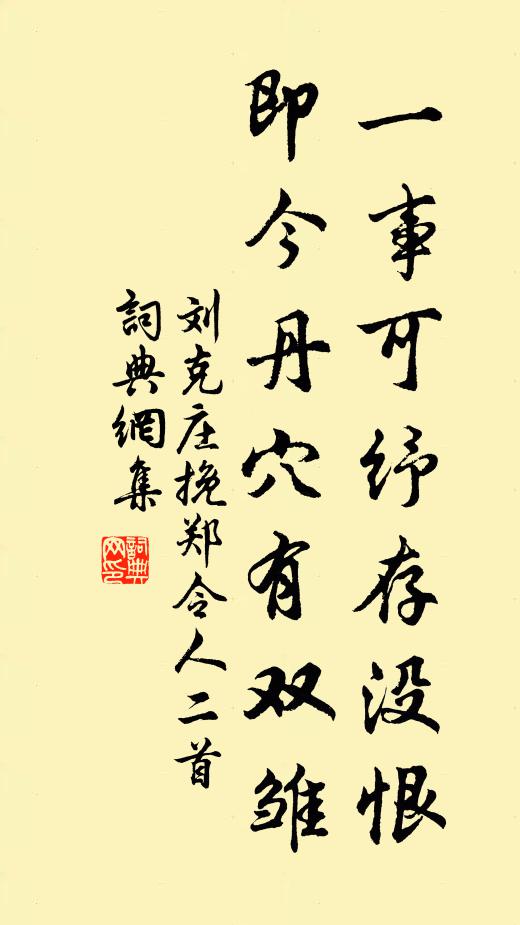 一事可纾存没恨
即今丹穴有双雏
刘克庄挽郑令人二首
詞典網集
詞典网印